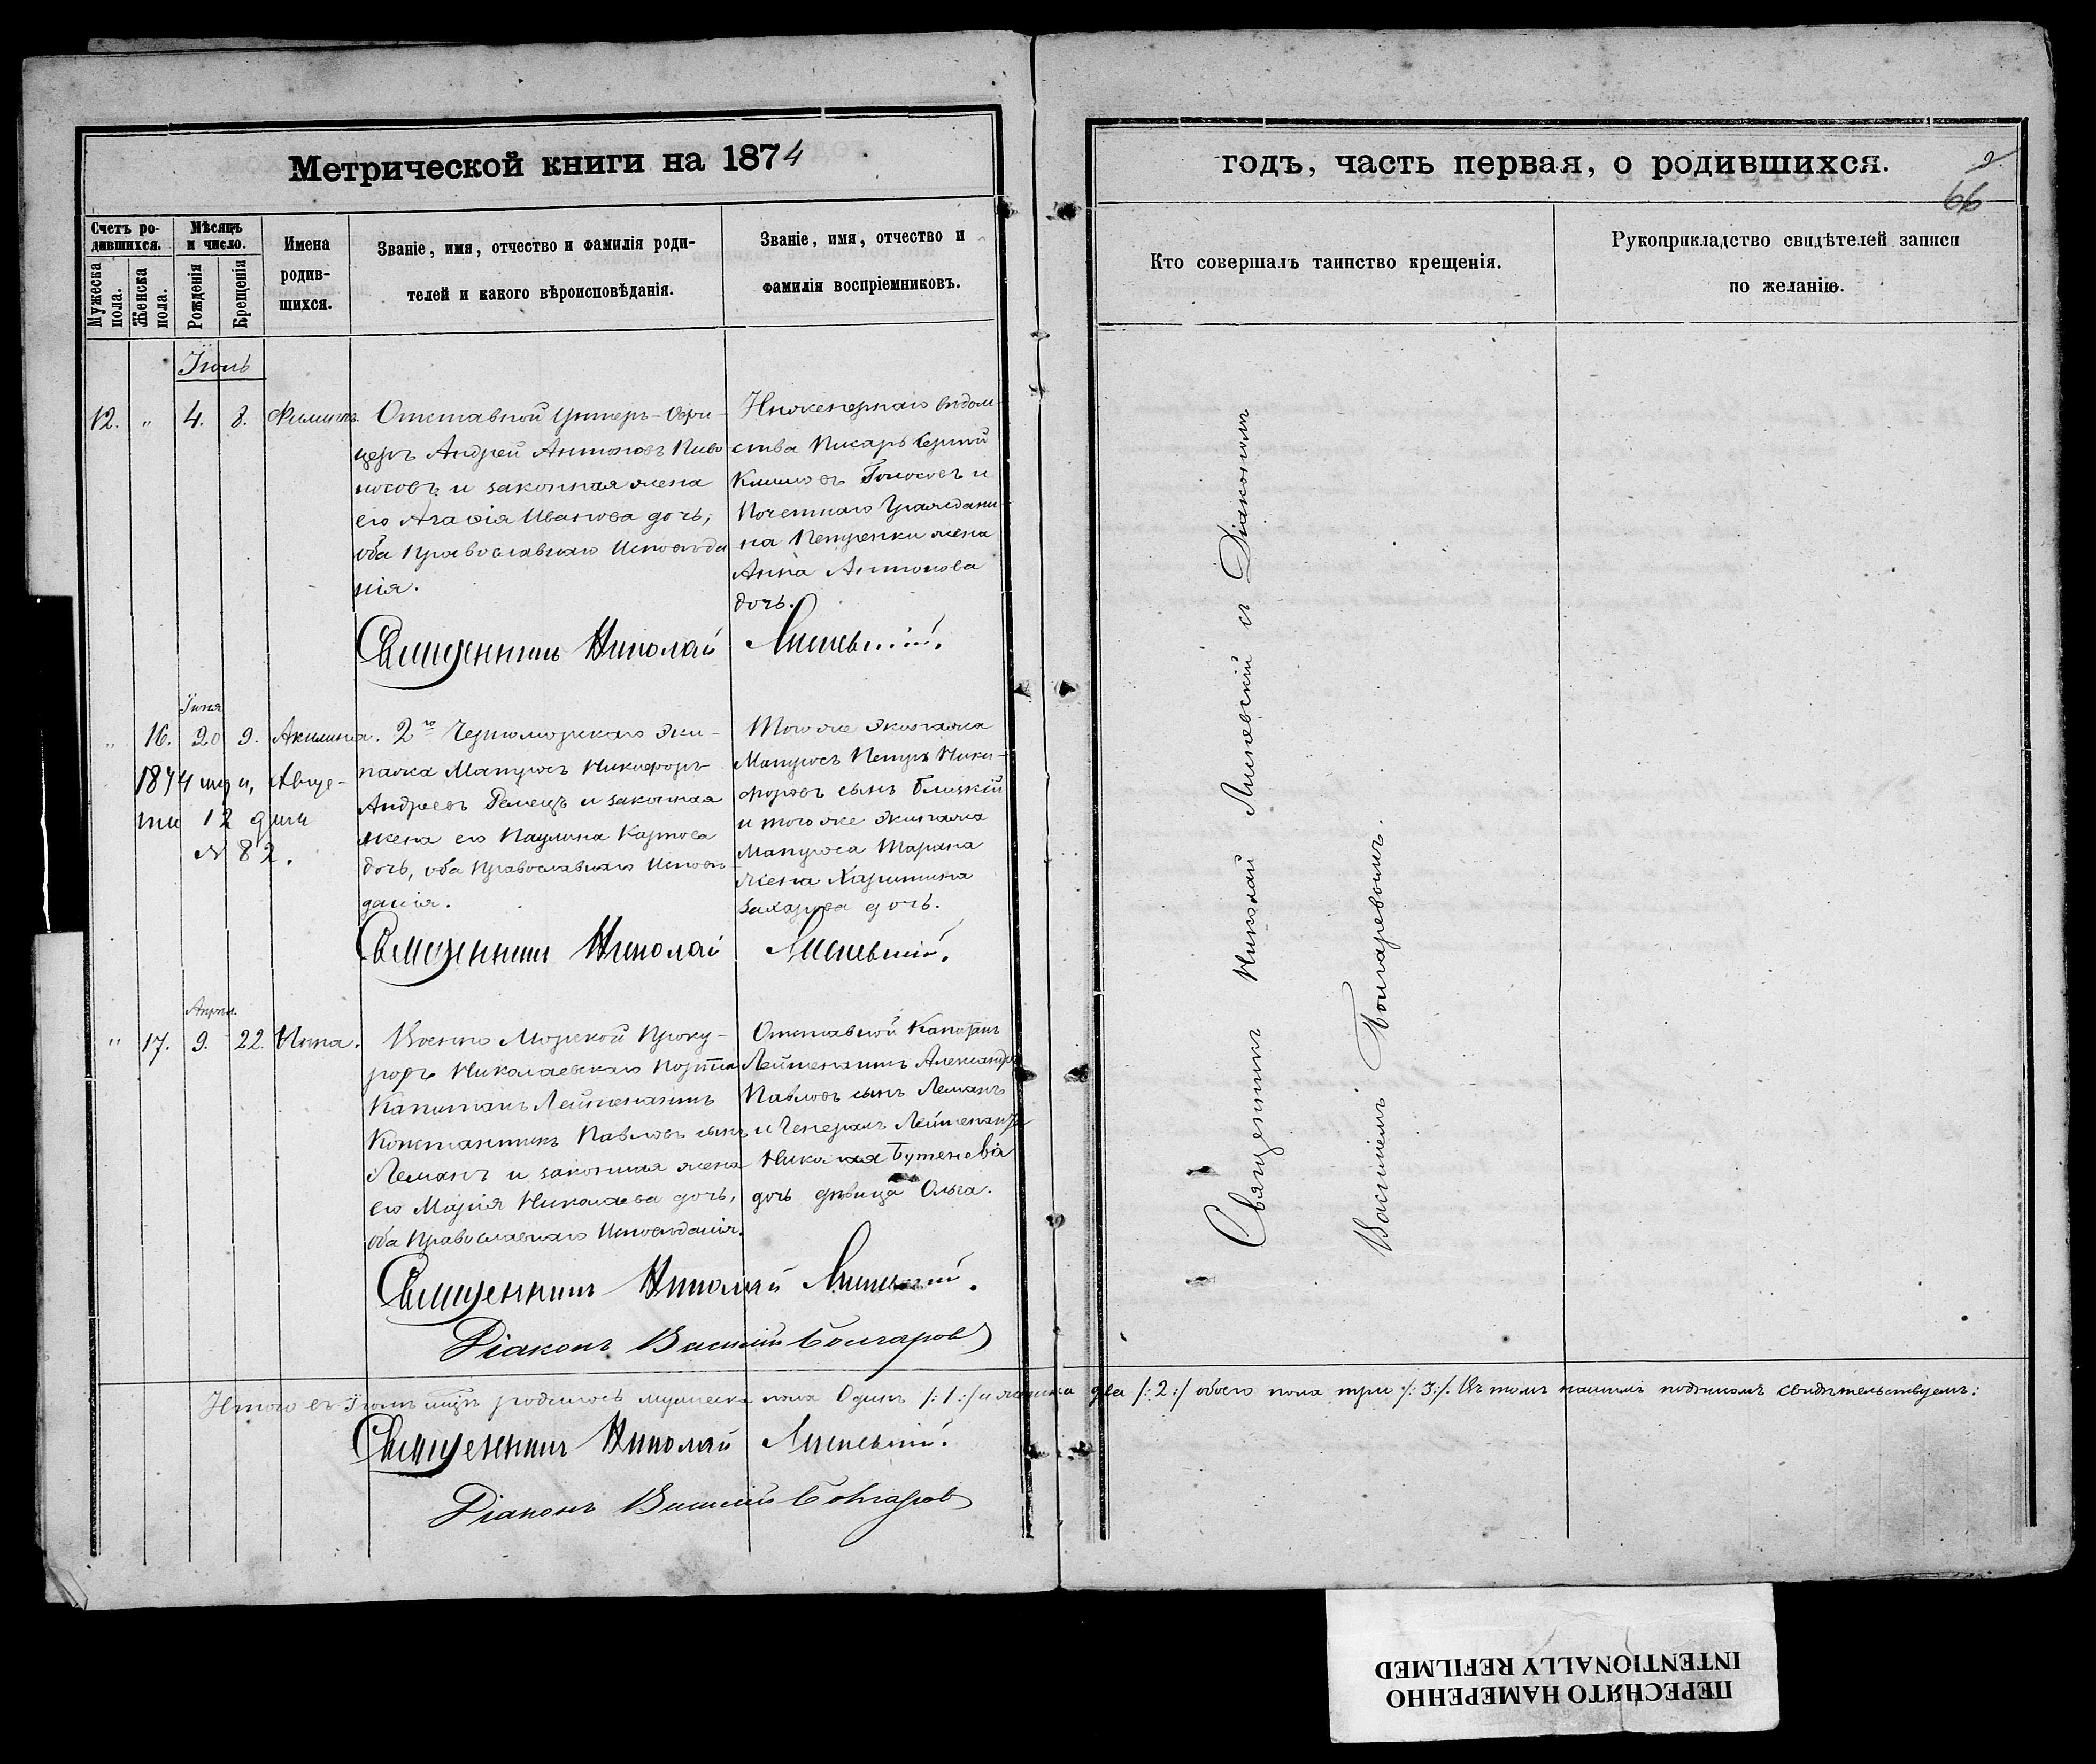 Метрической книги на 1874
Счетъ ро-
дившихся.
Мужеска
пола.
Женска
пола.
Мѣсяцъ
и число.
Рожденія
Крещенія
Имена
родив-
шихся.
Званіе, имя, отчество и фамилія роди-
телей и какого вѣроисповѣданія.
Званіе, имя, отчество и
фамилія воспріемниковъ.
Іюль
12. „ 4. 8. Филиппъ.
Отставной Унтеръ-Офи-
церъ Андрей Антоновъ Пиво
носовъ и законная жена
его Агафія Иванова дочь,
оба Православнаго Исповѣда
нія.
Инженернаго вѣдом-
ства Писарь Сергій
Голосовъ и
Почетнаго Граждани-
на Петренки жена
Анна Антонова
дочь.
Священникъ Николай Линевскій.
Іюня
„ 16. 20 9. Акилина.
1874 года, Авгус-
та 12 дня
№ 82.
2го Черноморскаго Эки-
пажа Матросъ Никифоръ
Андреевъ и законная
жена его Паулина Карлова
дочь, оба Православнаго Исповѣ
данія.
Того же Экипажа
Матросъ Петръ Ники-
форовъ сынъ Близкій
и того же Экипажа
Матроса Тарана
жена Харитина
Захарова дочь.
Священникъ Николай Линевскій.
Апрѣля.
„ 17. 9. 22. Нина.
Военно Морской Проку-
роръ Николаевскаго Порта
Капитанъ Лейтенантъ
Константинъ Павловъ сынъ
Леманъ и законная жена
его Марія Николаева дочь,
оба Православнаго Исповѣданія.
Отставной Капитанъ
Лейтенантъ Александръ
Павловъ сынъ Леманъ
и Генералъ Лейтенанта
Николая Бутенева
дочь дѣвица Ольга.
Священникъ Николай Линевскій.
Діаконъ Василій Болгаровъ
Итого въ Іюлѣ мцѣ родилось мужеска пола Одинъ /:1:/ и женска два /:2:/ обоего пола три /:3:/. Въ томъ нашимъ подписомъ свидѣтельствуемъ:
Священникъ Николай Линевскій.
Діаконъ Василій Болгаровъ
годъ, часть первая, о родившихся.
66
Кто совершалъ таинство крещенія.
Рукоприкладство свидѣтелей записи
по желанію.
Священникъ Николай Линевскій съ Діакономъ
Василіемъ Болгаревымъ.
ПЕРЕСНЯТО НАМЕРЕННО
INTENTIONALLY REFILMED